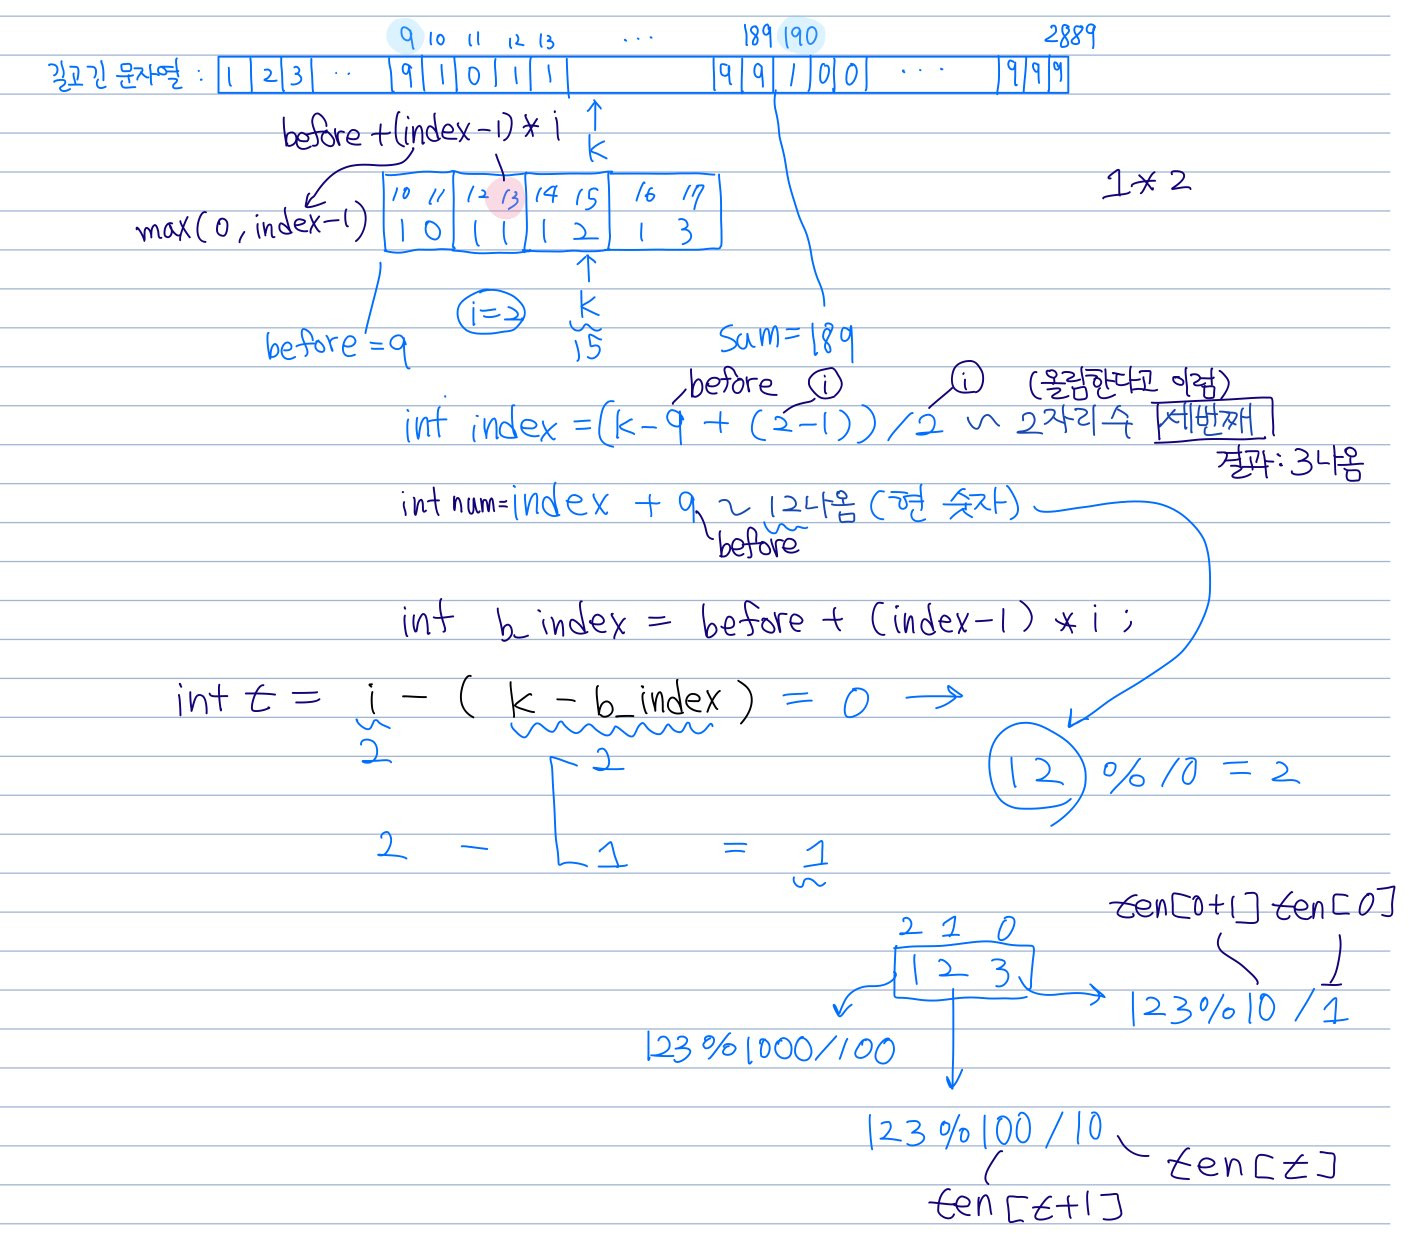 9 10 11 12 13 ... 189 190 2889
길고긴 문자열 : 1 2 3 .. 9 1 0 1 1 9 9 1 0 0 ... 9 9 9
before +(index-1) * i
k
1 * 2
10 11 12 13 14 15 16 17
max(0, index-1) 1 0 1 1 1 2 1 3
i=2 k
before=9 15 sum=189
before i i (올림한다고 이럼)
int index =(k-9 + (2-1)) /2 ~ 2자리수 세번째
결과: 3나옴
int num=index + 9 ~ 12나옴 (현 숫자)
before
int b_index = before + (index-1) * i ;
int t = i - ( k - b_index ) = 0 →
2 2
12 % 10 = 2
2 - 1 = 1
ten[0+1] ten[0]
2 1 0
1 2 3
123%10 / 1
123%1000/100
123%100 / 10
ten[t]
ten[t+1]